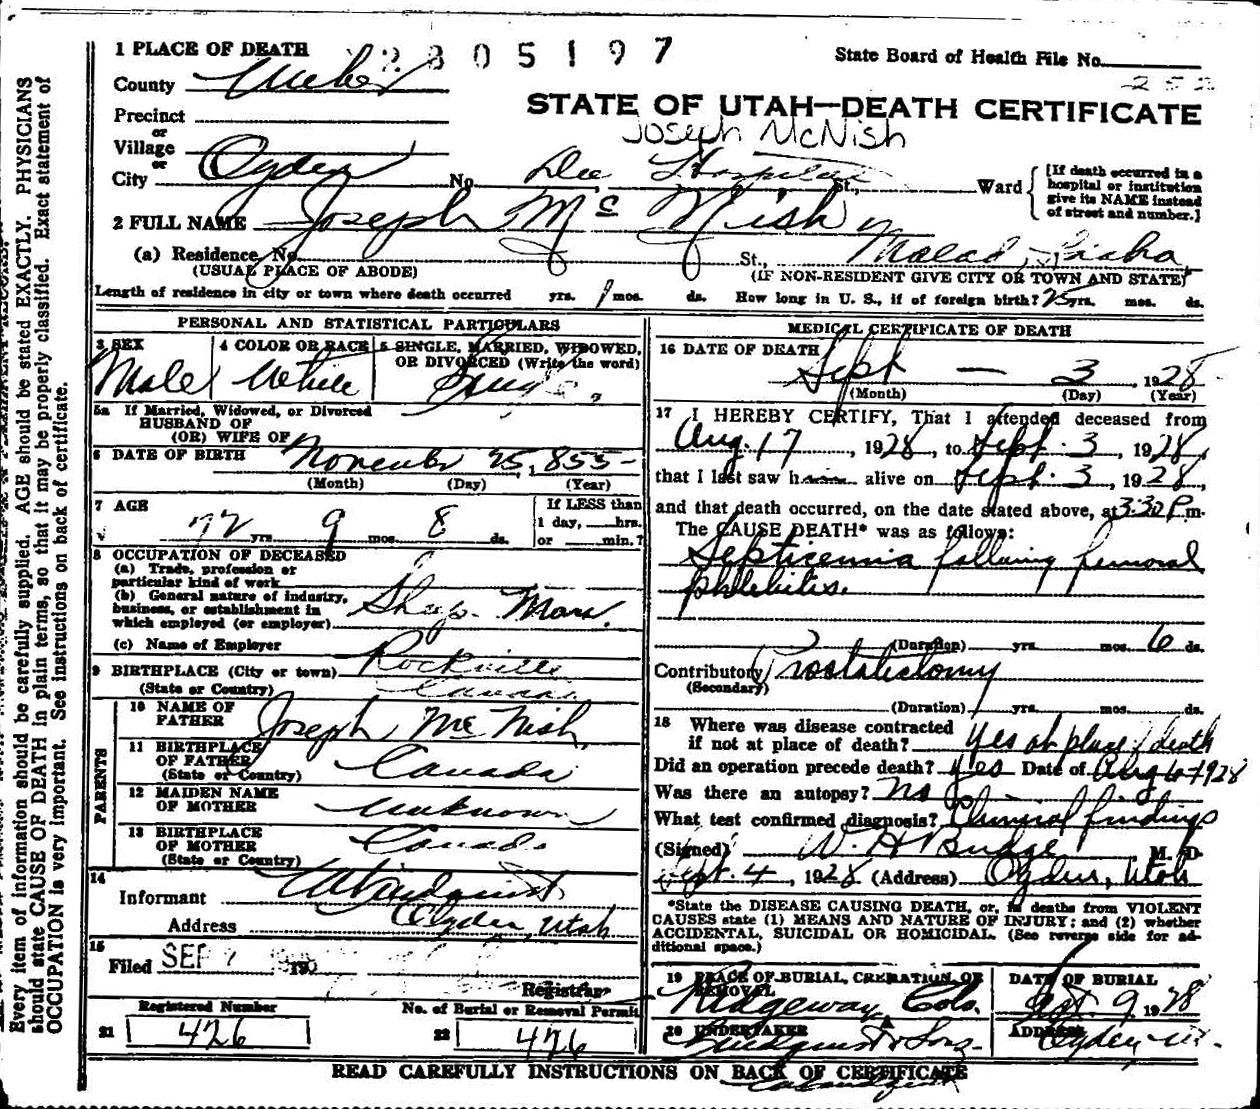 1 PLACE OF DEATH
2805197
State Board of Health File No.
252
County Weber
STATE OF UTAH—DEATH CERTIFICATE
Joseph McNish
Precinct
or
Village
or
City Ogden No. Dee Hospital St., Ward
[If death occurred in a
hospital or institution
give its NAME instead
of street and number.]
2 FULL NAME Joseph Mc Nish
(a) Residence, No. St., Malad, Idaho
(USUAL PLACE OF ABODE) (IF NON-RESIDENT GIVE CITY OR TOWN AND STATE)
Length of residence in city or town where death occurred yrs. 1 mos. ds. How long in U. S., if of foreign birth? 25 yrs. mos. ds.
PERSONAL AND STATISTICAL PARTICULARS
3 SEX
Male
4 COLOR OR RACE
White
5 SINGLE, MARRIED, WIDOWED,
OR DIVORCED (Write the word)
Single
5a If Married, Widowed, or Divorced
HUSBAND OF
(OR) WIFE OF
6 DATE OF BIRTH November 25, 1855
(Month) (Day) (Year)
7 AGE
72 yrs. 9 mos. 8 ds.
If LESS than
1 day, hrs.
or min.?
8 OCCUPATION OF DECEASED
(a) Trade, profession or
particular kind of work
(b) General nature of industry,
business, or establishment in
which employed (or employer) Sheep Man.
(c) Name of Employer
9 BIRTHPLACE (City or town) Rockville
(State or Country) Canada
PARENTS
10 NAME OF
FATHER Joseph Mc Nish
11 BIRTHPLACE
OF FATHER
(State or Country) Canada
12 MAIDEN NAME
OF MOTHER Unknown
13 BIRTHPLACE
OF MOTHER
(State or Country) Canada
14
Informant
Address Ogden, Utah
15
Filed SEP 7 19
Registrar
Registered Number
21 426
No. of Burial or Removal Permit
22 426
MEDICAL CERTIFICATE OF DEATH
16 DATE OF DEATH
Sept — 3, 1928
(Month) (Day) (Year)
17 I HEREBY CERTIFY, That I attended deceased from
Aug. 17, 1928, to Sept. 3, 1928,
that I last saw him alive on Sept. 3, 1928,
and that death occurred, on the date stated above, at 3:30 P.m.
The CAUSE DEATH* was as follows:
Septicemia following femoral
phlebitis.
(Duration) yrs. mos. 6 ds.
Contributory Prostatectomy
(Secondary)
(Duration) yrs. mos. ds.
18 Where was disease contracted
if not at place of death? Yes at place of death
Did an operation precede death? Yes Date of Aug 1928
Was there an autopsy? No
What test confirmed diagnosis? Clinical findings
(Signed) W. H. Budge M. D.
Sept. 4, 1928 (Address) Ogden, Utah
*State the DISEASE CAUSING DEATH, or, in deaths from VIOLENT
CAUSES state (1) MEANS AND NATURE OF INJURY; and (2) whether
ACCIDENTAL, SUICIDAL OR HOMICIDAL. (See reverse side for ad-
ditional space.)
19 PLACE OF BURIAL, CREMATION, OR
REMOVAL
Ridgeway, Colo.
DATE OF BURIAL
Sept. 9, 1928
20 UNDERTAKER
Lindquist & Sons
ADDRESS
Ogden, Ut.
READ CAREFULLY INSTRUCTIONS ON BACK OF CERTIFICATE
Every item of information should be carefully supplied. AGE should be stated EXACTLY. PHYSICIANS
should state CAUSE OF DEATH in plain terms, so that it may be properly classified. Exact statement of
OCCUPATION is very important. See instructions on back of certificate.